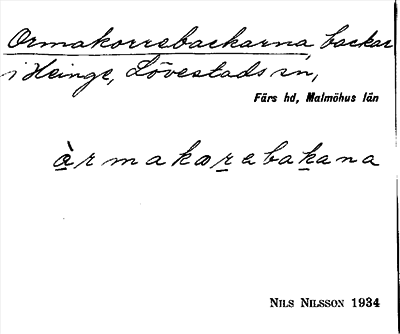 Ormakorrebackarna, backar
i Heinge, Lövestads sn,
Färs hd, Malmöhus län
àrmakorebakana
NILS NILSSON 1934